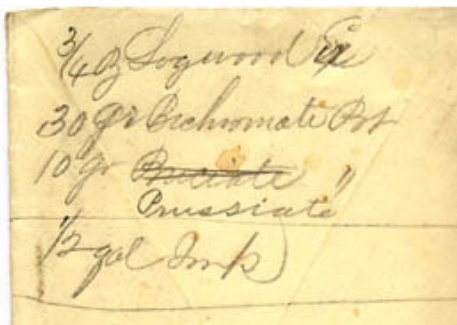 3/4 oz Logwood Ex
30 gr Bichromate Pot
10 gr Prusciate "
Prussiate
1/2 gal Ink